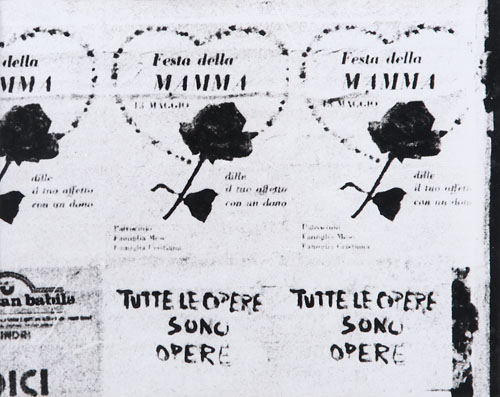 della
MMA
dille
il tuo affetto
con un dono
Festa della
MAMMA
13 MAGGIO
dille
il tuo affetto
con un dono
Patrocinio
Famiglia Mese
Famiglia Cristiana
Festa della
MAMMA
13 MAGGIO
dille
il tuo affetto
con un dono
Patrocinio
Famiglia Mese
Famiglia Cristiana
an babila
INDRI
DICI
TUTTE LE OPERE
SONO
OPERE
TUTTE LE OPERE
SONO
OPERE